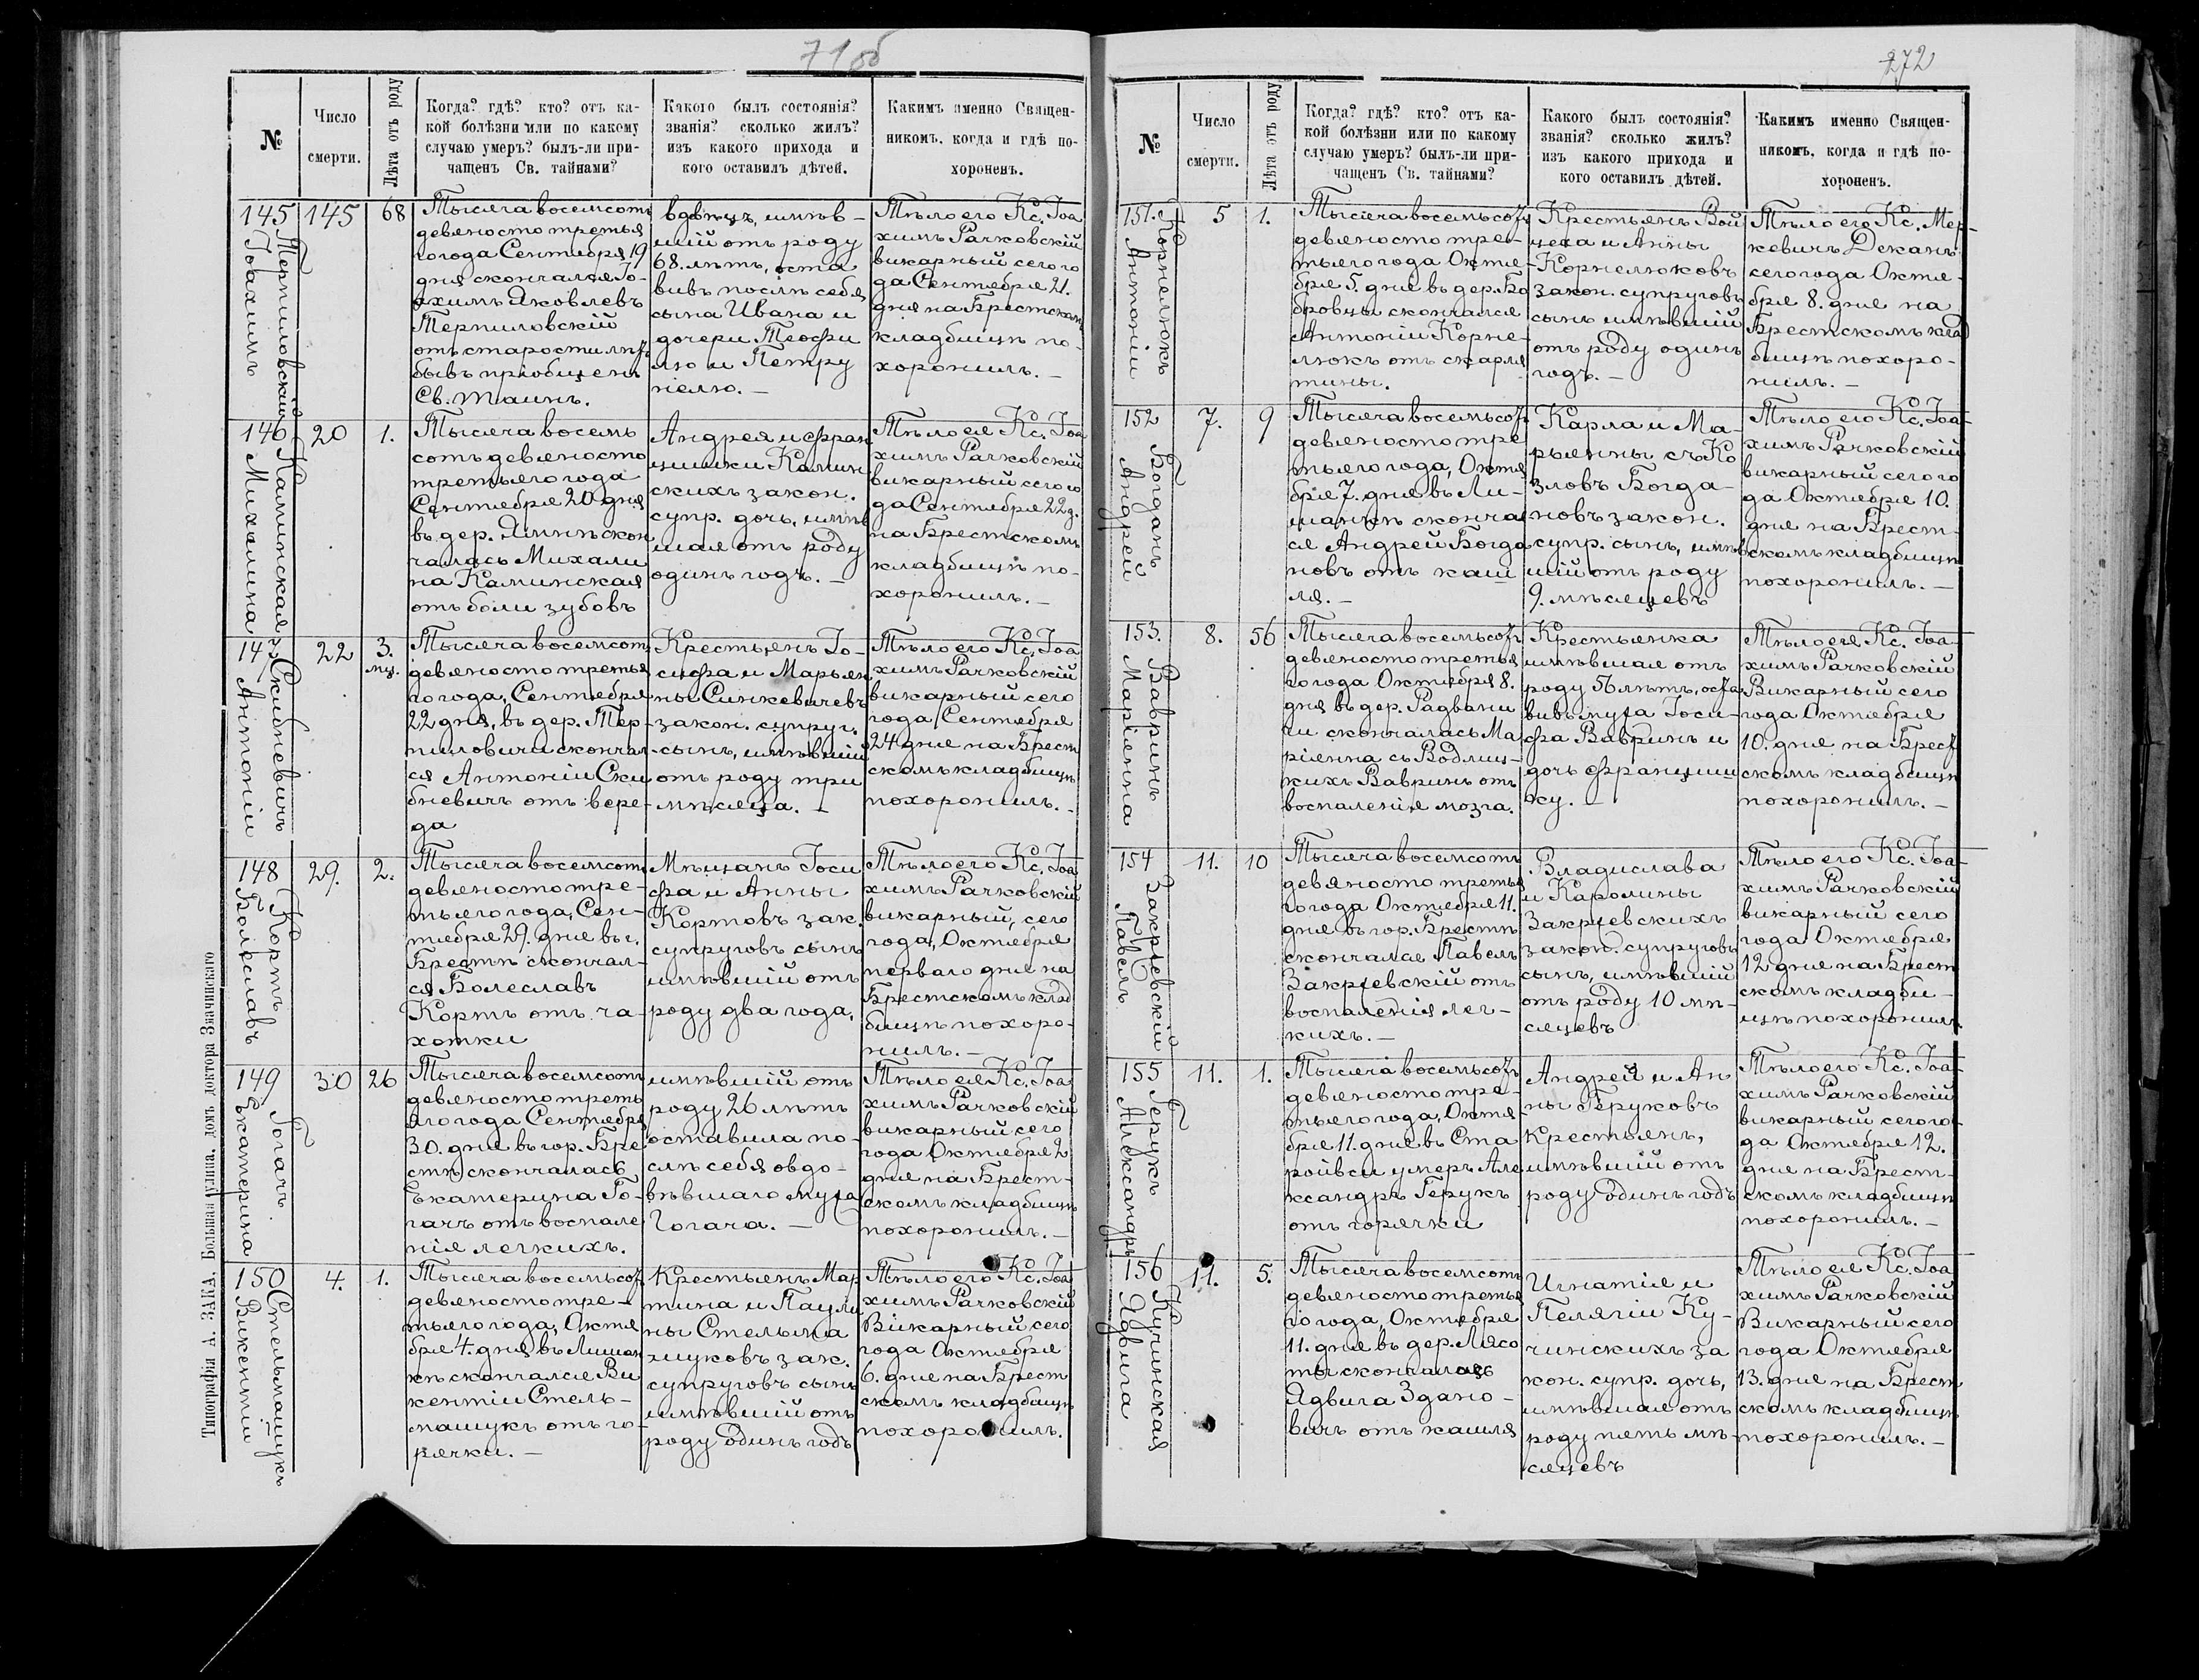 71 об
№
Число
смерти.
Лѣта отъ роду
Когда? гдѣ? кто? отъ ка-
кой болѣзни или по какому
случаю умеръ? былъ-ли при-
чащенъ Св. тайнами?
Какого былъ состоянія?
званія? сколько жилъ?
изъ какого прихода и
кого оставилъ дѣтей.
Какимъ именно Священ-
никомъ, когда и гдѣ по-
хороненъ.
145
Терпиловскій
Іоахимъ
145
68
Тысяча восемсотъ
девяносто третья
го года Сентября 19
дня скончался Іо-
ахимъ Яковлевъ
Терпиловскій
отъ старости лѣтъ
бывъ пріобщенъ
Св. Таинъ.
вдовецъ, имѣв-
шій отъ роду
68. лѣтъ, оста
вивъ послѣ себя
сына Ивана и
дочери Теофи
лю и Петру
нелю. —
Тѣло его Кс. Іоа
химъ Рачковскій
викарный сего го
да Сентября 21.
дня на Брестскомъ
кладбищѣ по-
хоронилъ. —
146
Каминская
Михалина
20
1.
Тысяча восемь
сотъ девяносто
третьего года
Сентября 20 дня
въ дер. Ямнѣ скон
чалась Михали
на Каминская
отъ боли зубовъ
Андрея и Фран
цишки Камин
скихъ закон.
супр. дочь, имѣв
шая отъ роду
одинъ годъ. —
Тѣло ея Кс. Іоа
химъ Рачковскій
викарный сего го
да Сентября 22 д.
на Брестскомъ
кладбищѣ по-
хоронилъ. —
147
Скибневичъ
Антоній
22
3.
мц.
Тысяча восемсотъ
девяносто третья
го года, Сентября
22 дня, въ дер. Тер-
пиловичи скончал
ся Антоній Ски
бневичъ отъ вере-
да
Крестьянъ Іо-
сифа и Марьян
ны Синкевичевъ
закон. супруг.
сынъ, имѣвшій
отъ роду три
мѣсяца. —
Тѣло его Кс. Іоа
химъ Рачковскій
викарный сего
года Сентября
24 дня на Брест
скомъ кладбищѣ
похоронилъ. —
148
Кортъ
Болеславъ
29.
2.
Тысяча восемсотъ
девяносто тре-
тьего года, Сен-
тября 29. дня въ г.
Брестѣ скончал-
ся Болеславъ
Кортъ отъ ча-
хотки
Мѣщанъ Госи
фа и Анны
Кортовъ зак.
супруговъ сынъ
имѣвшій отъ
роду два года,
Тѣло его Кс. Іоа
химъ Рачковскій
викарный, сего
года, Октября
перваго дня на
Брестскомъ клад
бищѣ похоро-
нилъ. —
149
Гогачъ
Екатерина
30
26
Тысяча восемсотъ
девяносто треть
яго года Сентября
30. дня въ гор. Бре
стѣ скончалась
Екатерина Го-
гачъ отъ воспале
нія легкихъ.
имѣвшій отъ
роду 26 лѣтъ
оставила по-
слѣ себя овдо-
вѣвшаго мужа
Гогача. —
Тѣло ея Кс. Іоа
химъ Рачковскій
викарный сего
года Октября 2
дня на Брест-
скомъ кладбищѣ
похоронилъ. —
150
Стельмащукъ
Викентій
4.
1.
Тысяча восемьсотъ
девяносто тре-
тьего года, Октя
бря 4. дня въ Лишан
кѣ скончался Ви
кентій Стель-
мащукъ отъ го-
рячки. —
Крестьянъ Мар
тина и Паули
ны Стельма
щуковъ зак.
супруговъ сынъ
имѣвшій отъ
роду одинъ годъ
Тѣло его Кс. Іоа
химъ Рачковскій
Викарный сего
года Октября
6. дня на Брест
скомъ кладбищѣ
похоронилъ.
Типографія А. ЗАКА, Большая улица, домъ доктора Значинскаго
272
№
Число
смерти.
Лѣта отъ роду
Когда? гдѣ? кто? отъ ка-
кой болѣзни или по какому
случаю умеръ? былъ-ли при-
чащенъ Св. тайнами?
Какого былъ состоянія?
званія? сколько жилъ?
изъ какого прихода и
кого оставилъ дѣтей.
Какимъ именно Священ-
никомъ, когда и гдѣ по-
хороненъ.
151.
Корнелюкъ
Антоній
5
1.
Тысяча восемьсотъ
девяносто тре-
тьего года Октя-
бря 5. дня въ дер. Бо
бровцы скончался
Антоній Корне-
люкъ отъ скарла
тины.
Крестьянъ Вой
цеха и Анны
Корнелюковъ
закон. супруговъ
сынъ имѣвшій
отъ роду одинъ
годъ. —
Тѣло его Кс. Мер-
кевичъ Деканъ
сего года Октя-
бря 8. дня на
Брестскомъ клад
бищѣ похоро-
нилъ. —
152
Богданъ
Андрей
7.
9
Тысяча восемьсотъ
девяносто тре
тьего года, Октя
бря 7. дня въ Ли-
шанкѣ сконча
ся Андрей Богда
новъ отъ каш
ля. —
Карла и Ма-
рьянны съ Ко
зловъ Богда-
новъ закон.
супр. сынъ, имѣв
шій отъ роду
9. мѣсяцевъ
Тѣло его Кс. Іоа-
химъ Рачковскій
викарный сего го
да Октября 10.
дня на Брест-
скомъ кладбищѣ
похоронилъ. —
153.
Вавринъ
Маріенна
8.
56
Тысяча восемьсотъ
девяносто третья
го года Октября 8.
дня въ дер. Радвани
чи скончалась Ма
ріенна съ Водлиц-
кихъ Вавринъ отъ
воспаленія мозга.
Крестьянка
имѣвшая отъ
роду 56 лѣтъ, оста
вивъ мужа Іоси-
фа Вавринъ и
дочь Францииш
ку. —
Тѣло ея Кс. Іоа-
химъ Рачковскій
Викарный сего
года Октября
10. дня на Брест
скомъ кладбищѣ
похоронилъ. —
154
Закржевскій
Павелъ
11.
10
Тысяча восемсотъ
девяносто третья
го года Октября 11.
дня въ гор. Брестѣ
скончался Павелъ
Закржевскій отъ
воспаленія лег-
кихъ. —
Владислава
и Каролины
Закржевскихъ
закон. супруговъ
сынъ, имѣвшій
отъ роду 10 мѣ-
сяцевъ
Тѣло его Кс. Іоа-
химъ Рачковскій
викарный сего
года Октября
12 дня на Брест
скомъ кладби-
щѣ похоронилъ.
155
Герукъ
Александръ
11.
1.
Тысяча восемьсотъ
девяносто тре-
тьего года, Октя
бря 11. дня въ Ста
ройвси умеръ Але
ксандръ Герукъ
отъ горячки
Андрей и Ан
ны Геруковъ
Крестьянъ,
имѣвшій отъ
роду одинъ годъ
Тѣло его Кс. Іоа-
химъ Рачковскій
викарный сего го-
да Октября 12.
дня на Брест-
скомъ кладбищѣ
похоронилъ. —
156
Кучинская
Ядвига
11.
5.
Тысяча восемсотъ
девяносто третья
го года, Октября
11. дня въ дер. Лясо
ты скончалась
Ядвига Здано-
вичъ отъ кашля
Игнатія и
Пелягіи Ку-
чинскихъ за
кон. супр. дочь,
имѣвшая отъ
роду пять мѣ-
сяцевъ
Тѣло ея Кс. Іоа
химъ Рачковскій
Викарный сего
года Октября
13. дня на Брест
скомъ кладбищѣ
похоронилъ. —